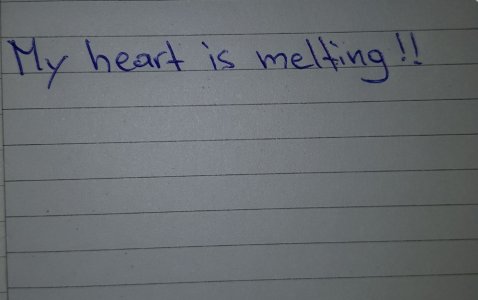 My heart is melting!!